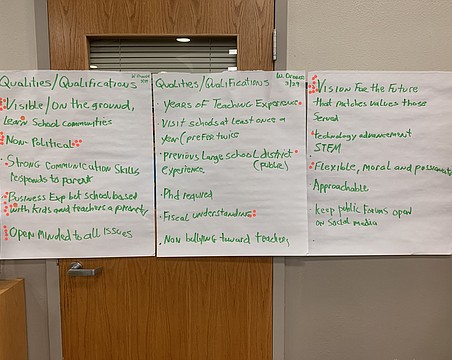 Qualities/Qualifications
W. Orange
Visible/on the ground,
Learn School communities
Non-Political
Strong Communication Skills
responds to parent
Business Exp but school based
with Kids and teachers a priority
Open Minded to all Issues
Qualities/Qualifications
W. Orange
3/29
Years of Teaching Experience
Visit schools at least once a
year (prefer twice
Previous Large school district
experience (public)
Phd required
Fiscal understanding
Non bullying toward teachers
Vision For the Future
that matches values those
Served
technology advancement
STEM
Flexible, moral and passionate
Approachable
keep public forums open
on Social media